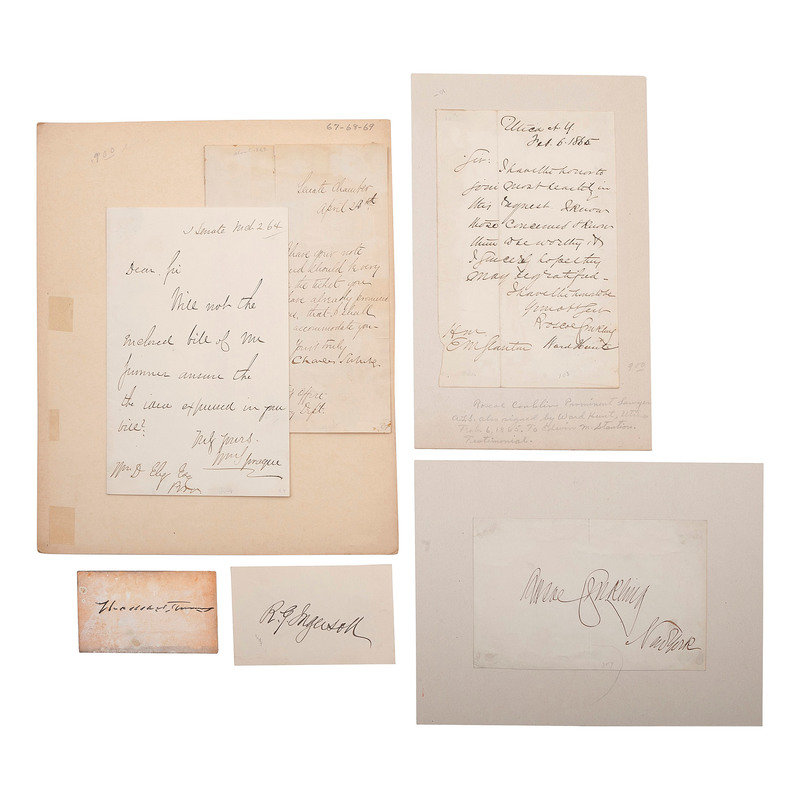 67-69-69
Senate Chamber
April 28th
have your note
and should be very
the ticket you
have already promised
that I shall
accommodate you
truly
Charles Sumner
Dept.
Senate Mch 2 64
Dear Sir
Will not the
inclosed bill of Mr
Sumner answer the
the idea expressed in your
bill?
yours
Wm Sprague
Wm D Ely Esq
Prov
Utica N Y.
Feb. 6. 1865
Sir:
I have the honor to
join most heartily in
this request. I know
those concerned & know
them to be worthy &
I sincerely hope they
may be gratified.
I have the honor to be
Your obt Servt
Roscoe Conkling
Hon Ward Hunt
E M Stanton
103
9.50
Roscoe Conklin Prominent Lawyer
A.L.S. also signed by Ward Hunt, Utica
Feb 6, 1865. To Edwin M. Stanton.
Testimonial.
R. G. Ingersoll
Roscoe Conkling
New York